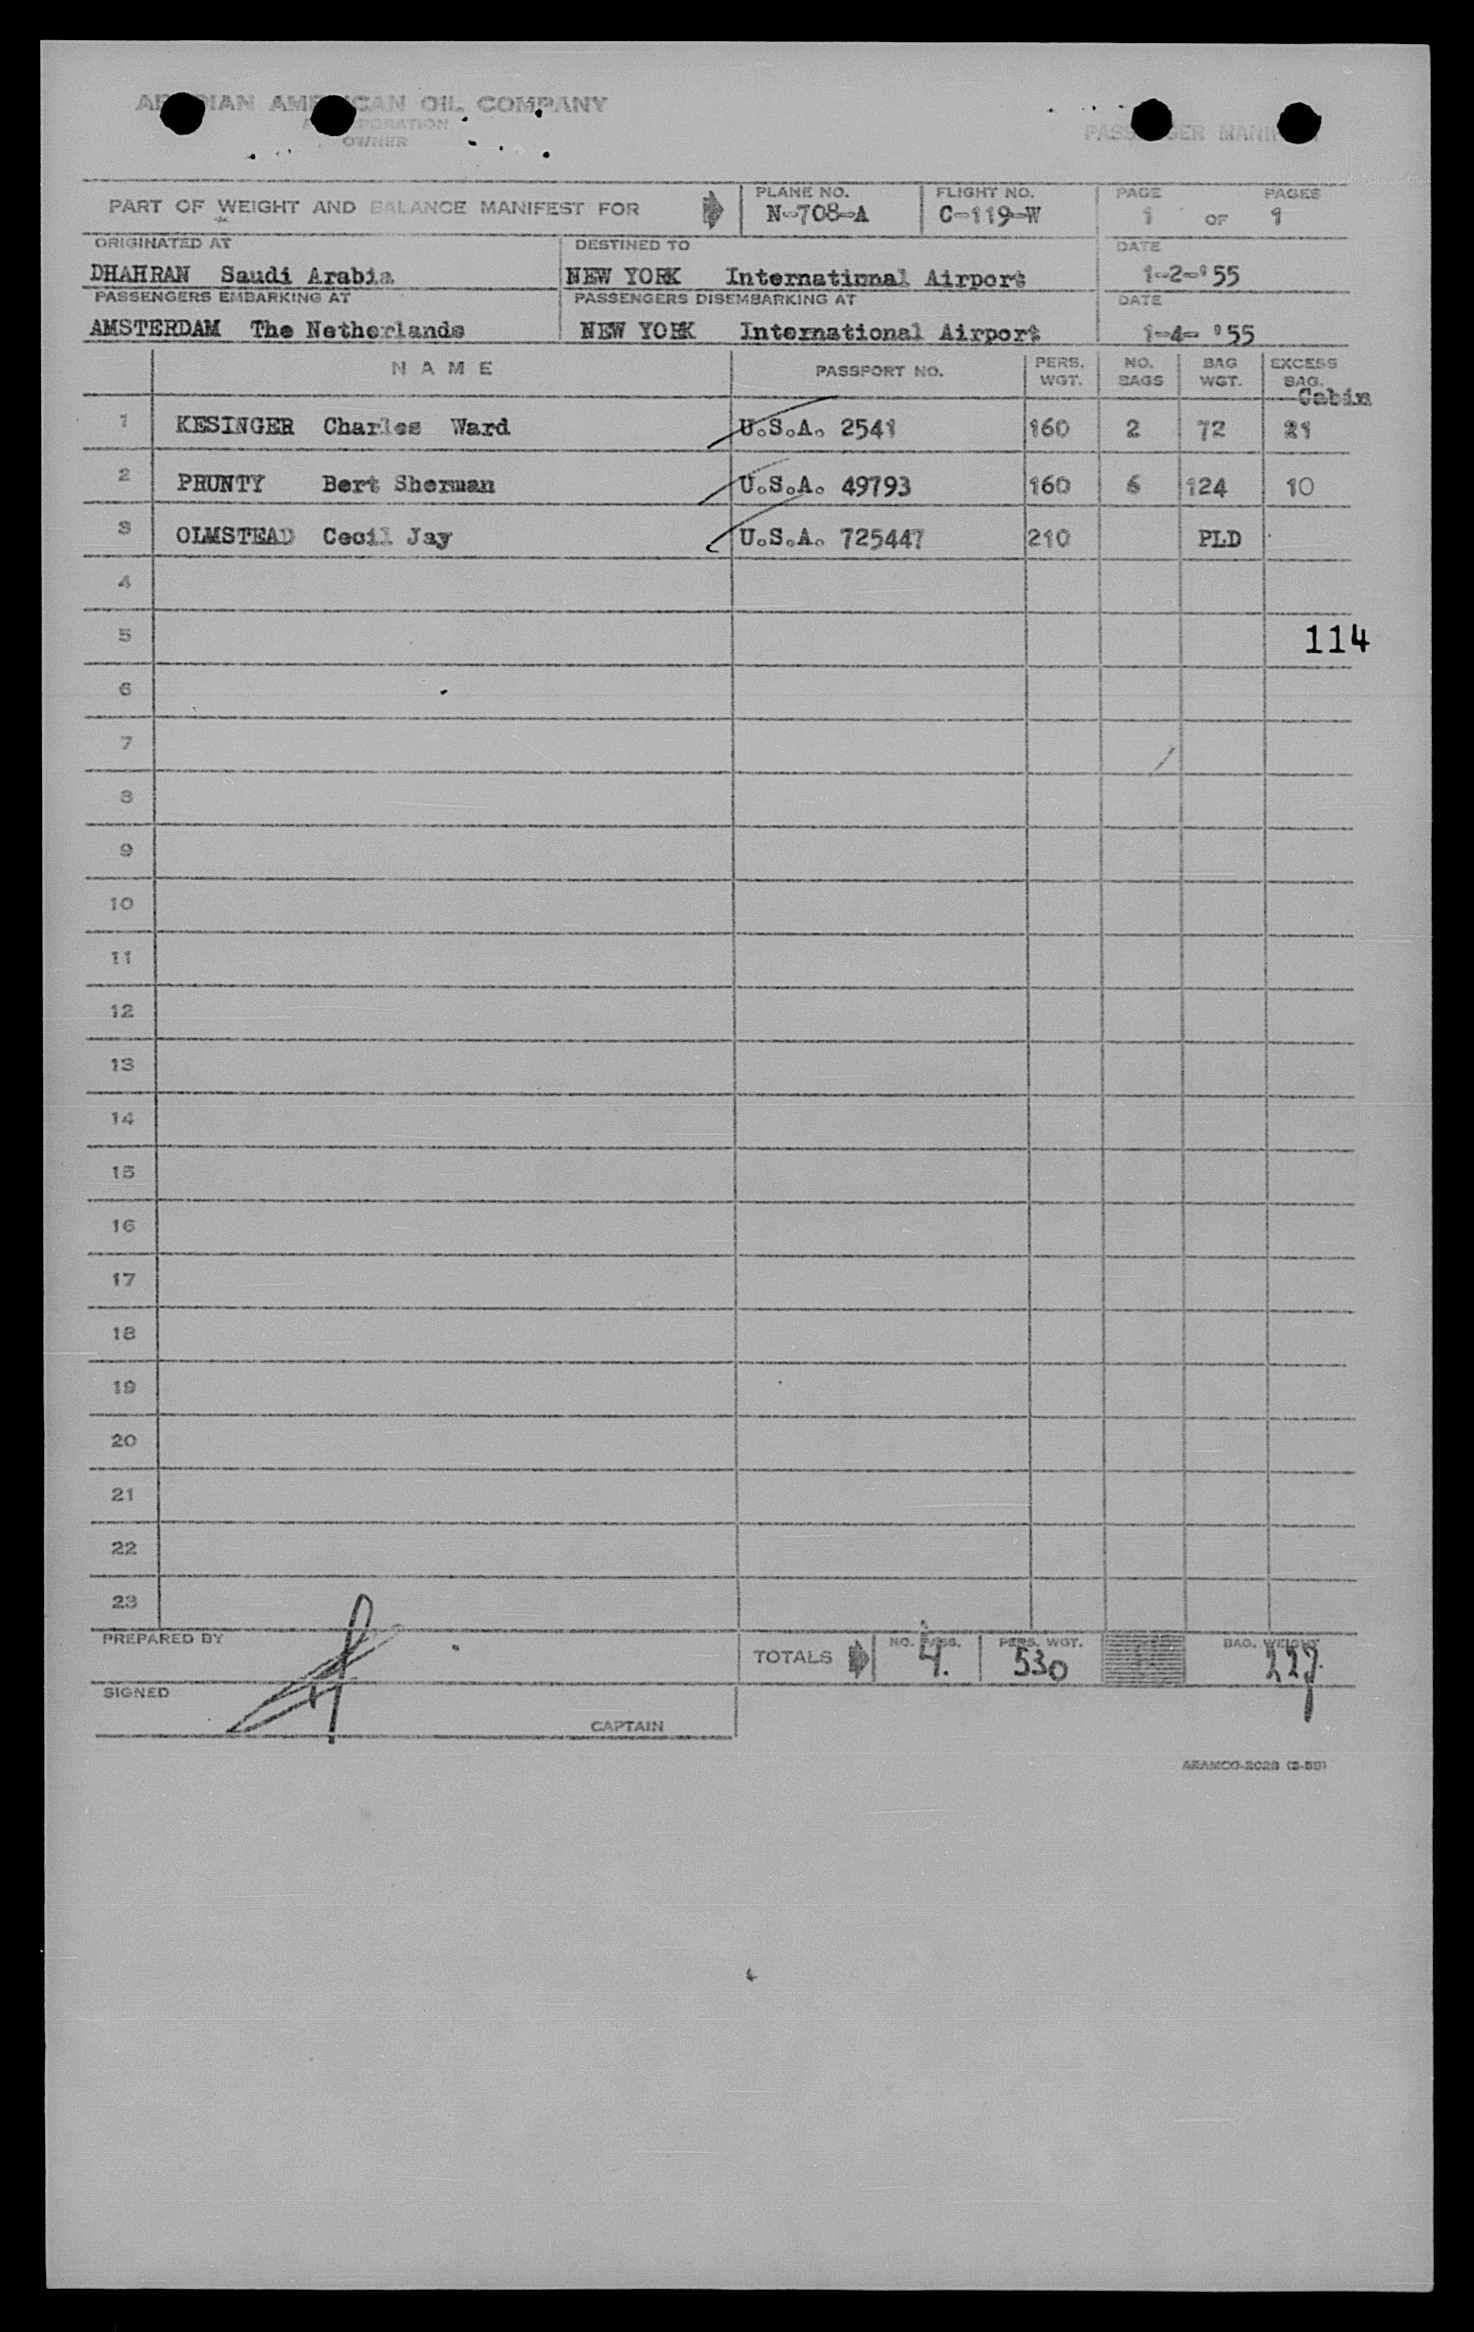 ARABIAN AMERICAN OIL COMPANY
A CORPORATION
OWNER
PASSENGER MANIFEST
PART OF WEIGHT AND BALANCE MANIFEST FOR
PLANE NO.
N-708-A
FLIGHT NO.
C-119-W
PAGE PAGES
1 OF 1
ORIGINATED AT
DHAHRAN Saudi Arabia
DESTINED TO
NEW YORK International Airport
DATE
1-2-'55
PASSENGERS EMBARKING AT
AMSTERDAM The Netherlands
PASSENGERS DISEMBARKING AT
NEW YORK International Airport
DATE
1-4-'55
NAME PASSPORT NO. PERS. WGT. NO. BAGS BAG WGT. EXCESS BAG.
Cabin
1 KESINGER Charles Ward U.S.A. 2541 160 2 72 21
2 PRUNTY Bert Sherman U.S.A. 49793 160 6 124 10
3 OLMSTEAD Cecil Jay U.S.A. 725447 210 PLD
4
5 114
6
7
8
9
10
11
12
13
14
15
16
17
18
19
20
21
22
23
PREPARED BY
TOTALS NO. PASS. 4. PERS. WGT. 530 BAG. WEIGHT 227
SIGNED
CAPTAIN